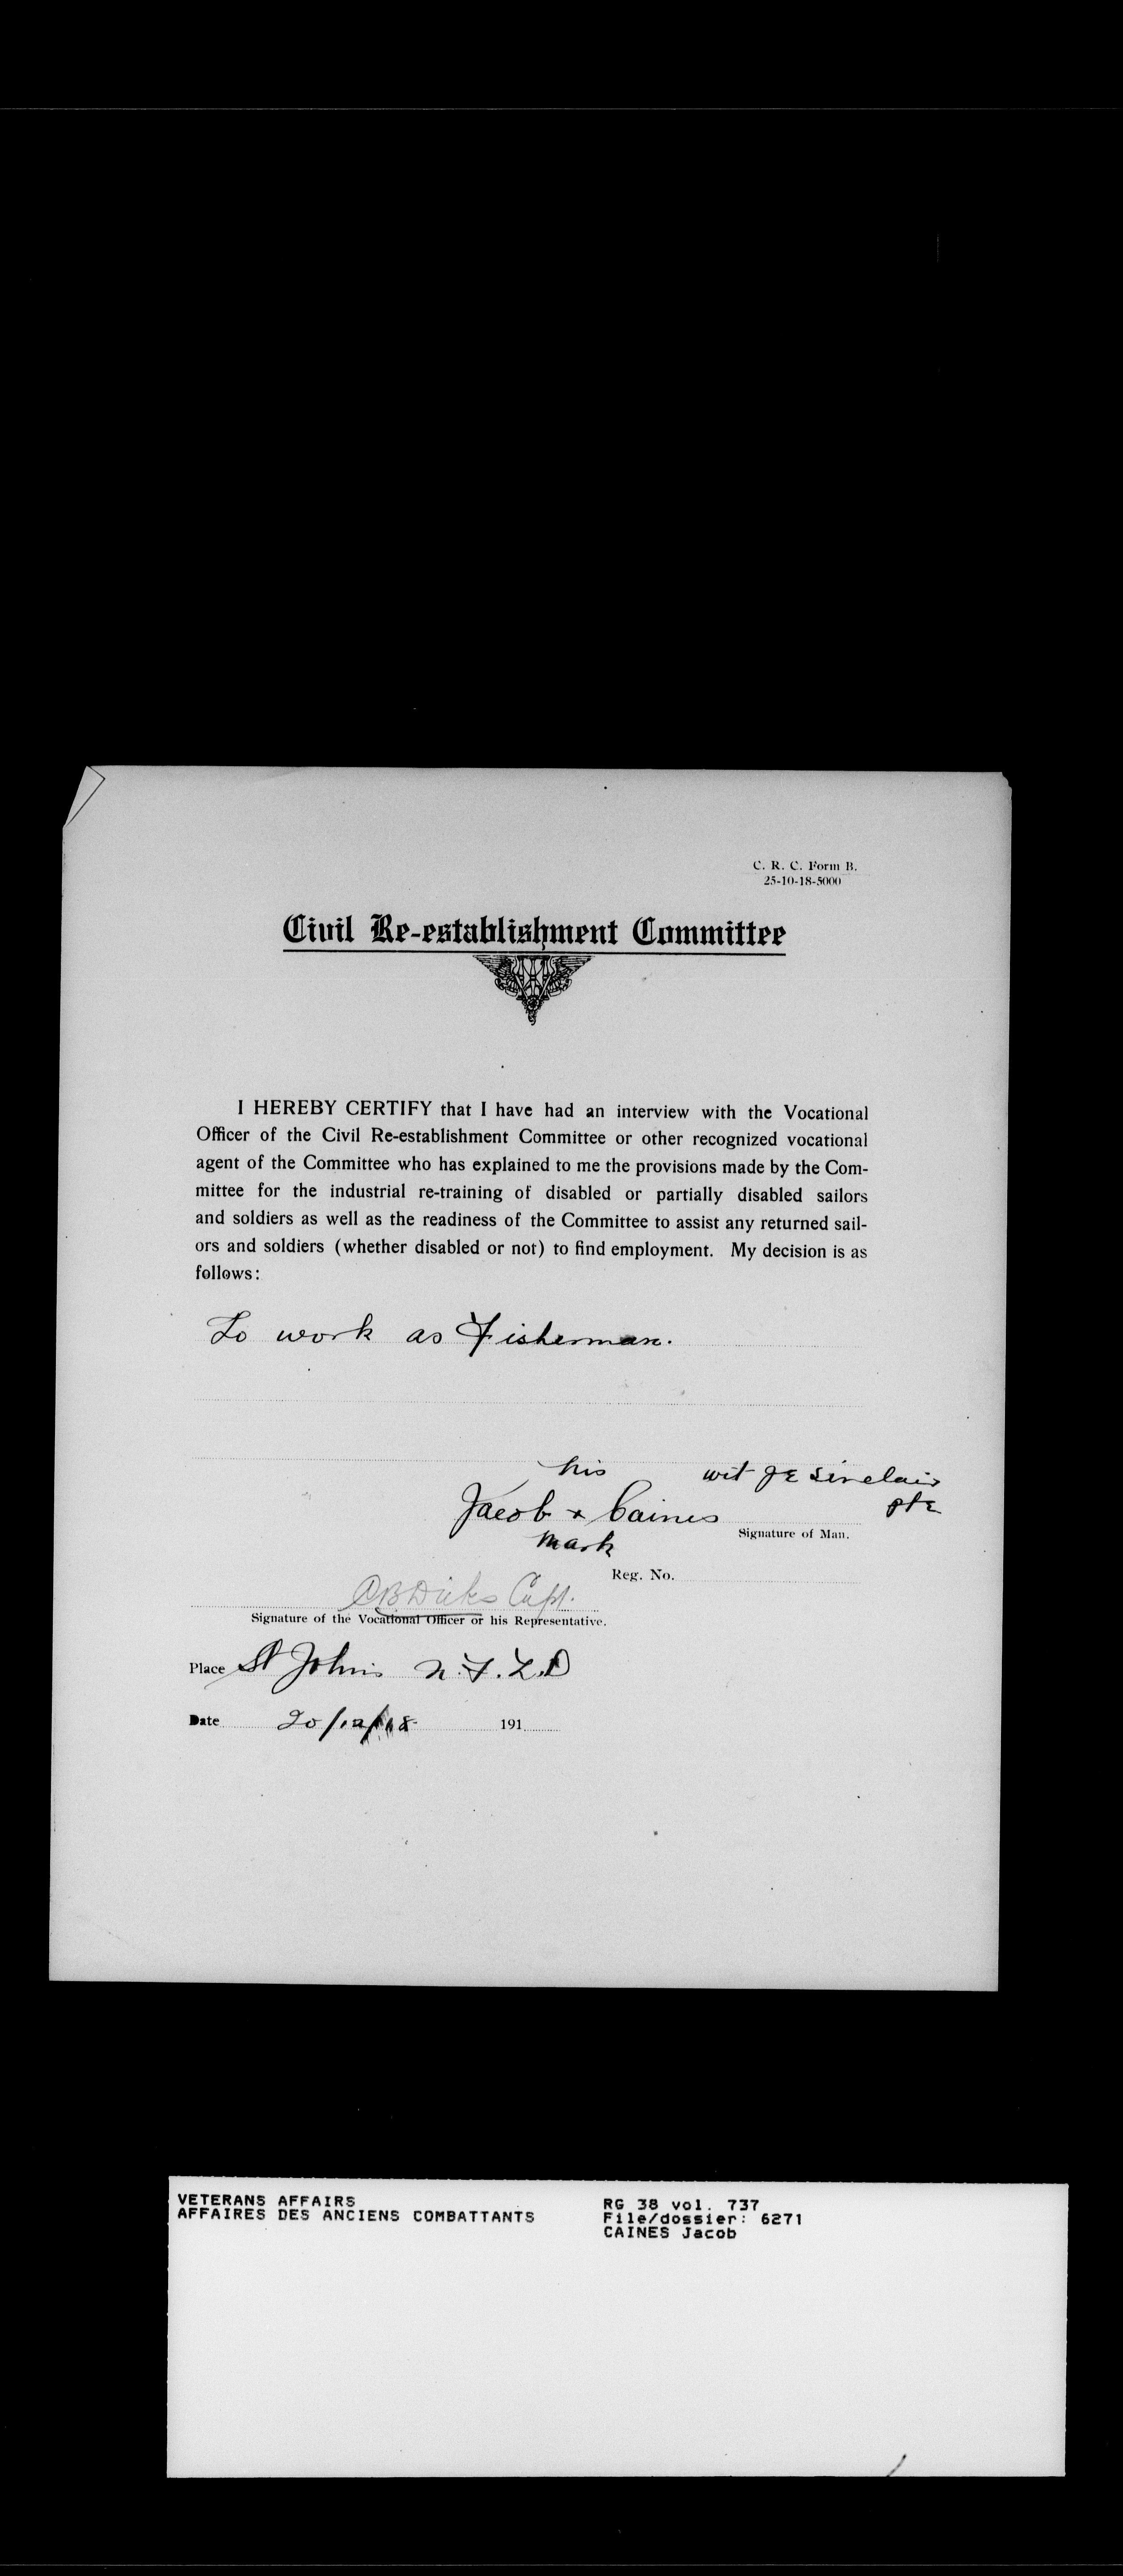 C. R. C. Form B.
25-10-18-5000
Civil Re-establishment Committee
I HEREBY CERTIFY that I have had an interview with the Vocational
Officer of the Civil Re-establishment Committee or other recognized vocational
agent of the Committee who has explained to me the provisions made by the Com-
mittee for the industrial re-training of disabled or partially disabled sailors
and soldiers as well as the readiness of the Committee to assist any returned sail-
ors and soldiers (whether disabled or not) to find employment. My decision is as
follows:
To work as Fisherman.
his wit J E Sinclair
Jacob x Caines Pte
mark Signature of Man.
Reg. No.
Capt.
Signature of the Vocational Officer or his Representative.
Place St Johns N.F.L.D
Date 20/12/18 191
VETERANS AFFAIRS
AFFAIRES DES ANCIENS COMBATTANTS
RG 38 vol. 737
File/dossier: 6271
CAINES Jacob